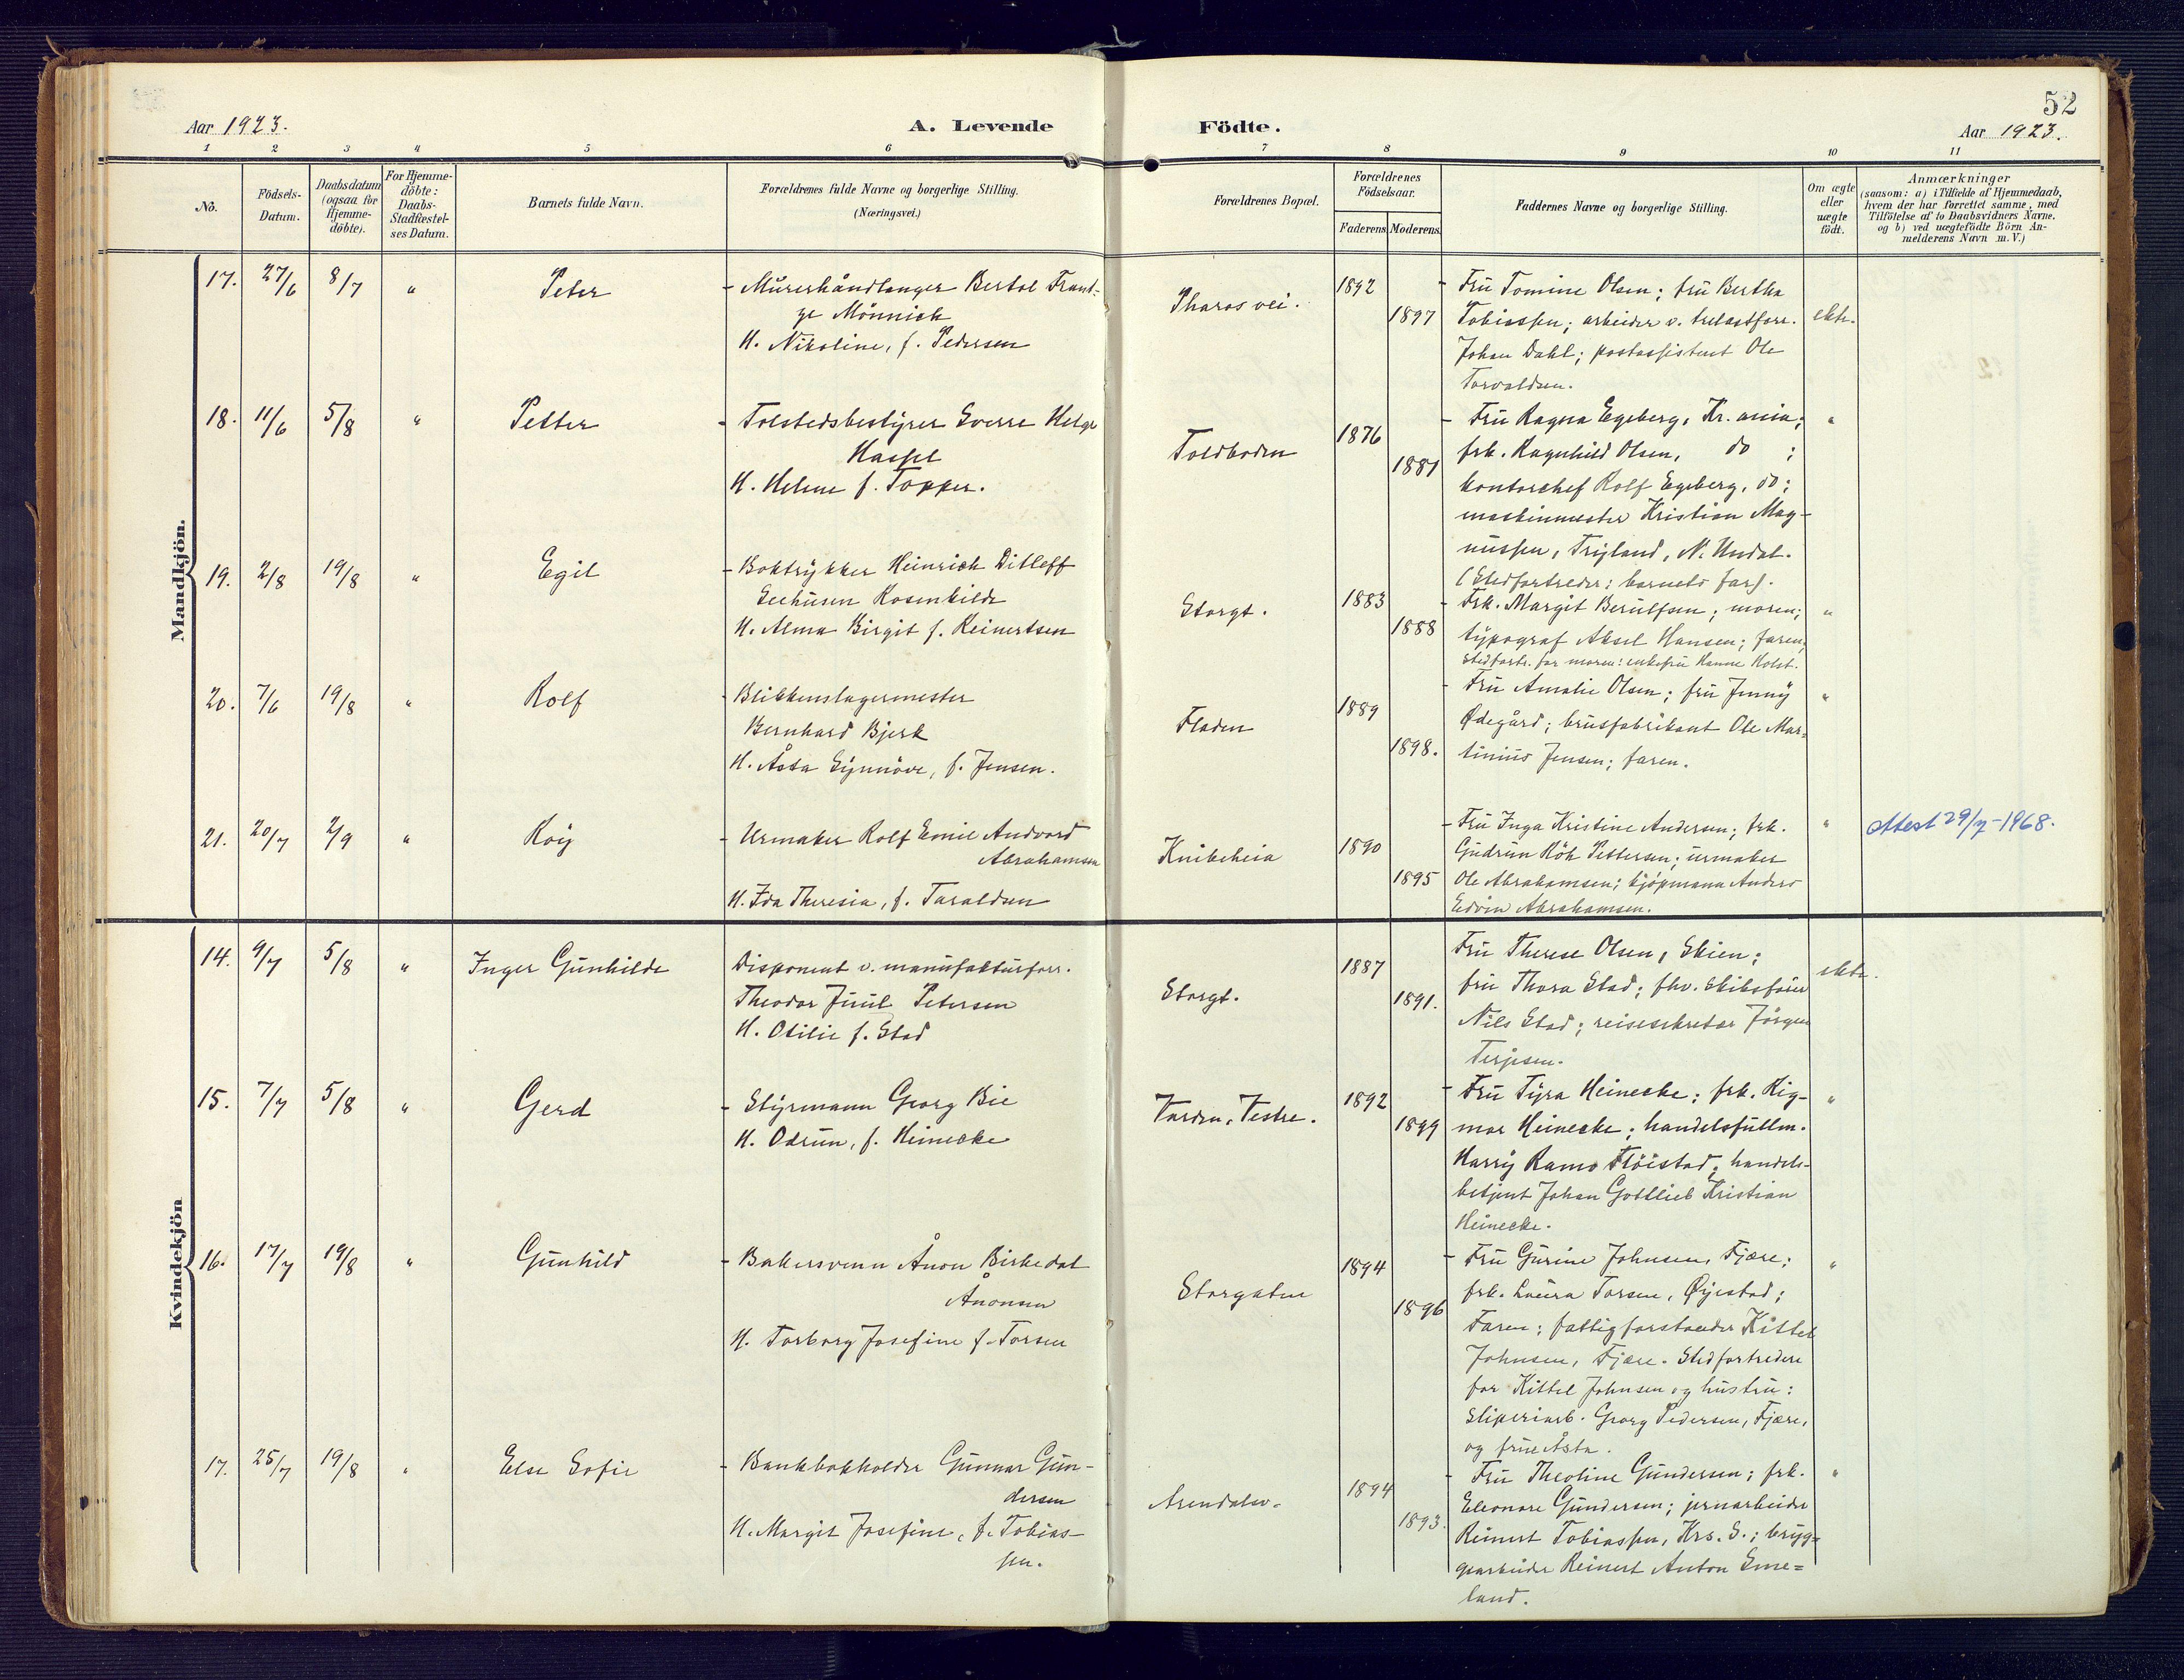 52
Aar 1923.
A. Levende
Födte.
Aar 1923.
1 2 3 4 5 6 7 8 9 10 11
No.
Födsels-
Datum.
Daabsdatum
(ogsaa for
Hjemme-
döbte).
For Hjemme-
döbte:
Daabs-
Stadfæstel-
ses Datum.
Barnets fulde Navn.
Forældrenes fulde Navne og borgerlige Stilling.
(Næringsvei.)
Forældrenes Bopæl.
Forældrenes
Födselsaar.
Faderens Moderens
Faddernes Navne og borgerlige Stilling.
Om ægte
eller
uægte
födt.
Anmærkninger
(saasom: a) i Tilfælde af Hjemmedaab,
hvem der har forrettet samme, med
Tilföielse af to Daabsvidners Navne.
og b) ved uægtefödte Börn An-
melderens Navn m. V.)
Mandkjön.
17. 27/6 8/7 " Peter
- Murerhåndlanger Bertol Frant-
ze Mönnich
H. Nikoline, f. Pedersen
Pharos vei.
1892
1897
- Fru Tomine Olsen; fru Bertha
Tobiassen; arbeider v. trelastforr.
Johan Dahl; postassistent Ole
Torvaldsen.
ekte.
18. 11/6 5/8 " Petter
- Tolstedsbestyrer Sverre Helge
Hassel
H. Helene f. Topper.
Toldboden
1876
1881
- Fru Ragna Egeberg, Kr.ania;
frk. Ragnhild Olsen, do ;
kontorchef Rolf Egeberg, do;
maskinmester Kristian Mag-
nussen, Trygland, N. Undal.
(Stedfortreder: barnets far).
"
19. 2/8 19/8 " Egil
- Boktrykker Heinrich Ditleff
Seehusen Rosenkilde
H. Alma Birgit f. Reinertsen
Storgt.
1883
1888
- Frk. Margit Berulfsen; moren;
typograf Aksel Hansen; faren;
Stedfortr. for moren: enkefru Hanne Holst.
"
20. 7/6 19/8 " Rolf
- Blikkenslagermester
Bernhard Bjerk
H. Åsta Synnöve, f. Jensen.
Fladen
1889
1898.
- Fru Amalie Olsen; fru Jenny
Ødegård; brusfabrikant Ole Mar-
tinius Jensen; faren.
"
21. 20/7 2/9 " Roy
- Urmaker Rolf Emil Andvord
Abrahamsen
H. Ida Theresia, f. Taraldsen
Knibeheia
1890
1895
- Fru Inga Kristine Andersen; frk.
Gudrun Röh Pettersen; urmaker
Ole Abrahamsen; kjöpmann Anders
Edvin Abrahamsen.
"
Attest 29/7-1968.
Kvindekjön
14. 9/7 5/8 " Inger Gunhilde
Disponent v. manufakturforr.
Theodor Juul Petersen
H. Otilie f. Stad
Storgt.
1887
1891.
Fru Therese Olsen, Skien;
fru Thora Stad; fhv. skibsförer
Nils Stad; reisesekretær Jörgen
Terjesen.
ekte.
15. 7/7 5/8 " Gerd
- Styrmann Georg Bie
H. Odrun, f. Heinecke
Varden, Vestre.
1892
1899
- Fru Tyra Heinecke; frk. Rig-
mor Heinecke; handelsfullm.
Harry Ramo Flöistad; handels-
betjent Johan Gottlieb Kristian
Heinecke.
"
16. 17/7 19/8 " Gunhild
- Bakersvenn Ånon Birkedal
Ånonsen
H. Torborg Josefine f. Torsen
Storgaten
1894
1896
- Fru Gurine Johnsen, Fjære;
frk. Laura Torsen, Øyestad;
Faren; fattigforstander Kittel
Johnsen, Fjære. Stedfortredere
for Kittel Johnsen og hustru:
Sliperiarb. Georg Pedersen, Fjære,
og frue Åsta.
"
17. 25/7 19/8 " Else Sofie
- Bankbokholder Gunnar Gun-
dersen
H. Margit Josefine, f. Tobias-
sen.
Arendalsv.
1894
1893.
- Fru Theoline Gundersen; frk.
Eleonore Gundersen; jernarbeider
Reinert Tobiassen, Krs. S.; bryg-
gearbeider Reinert Anton Eme-
land.
"